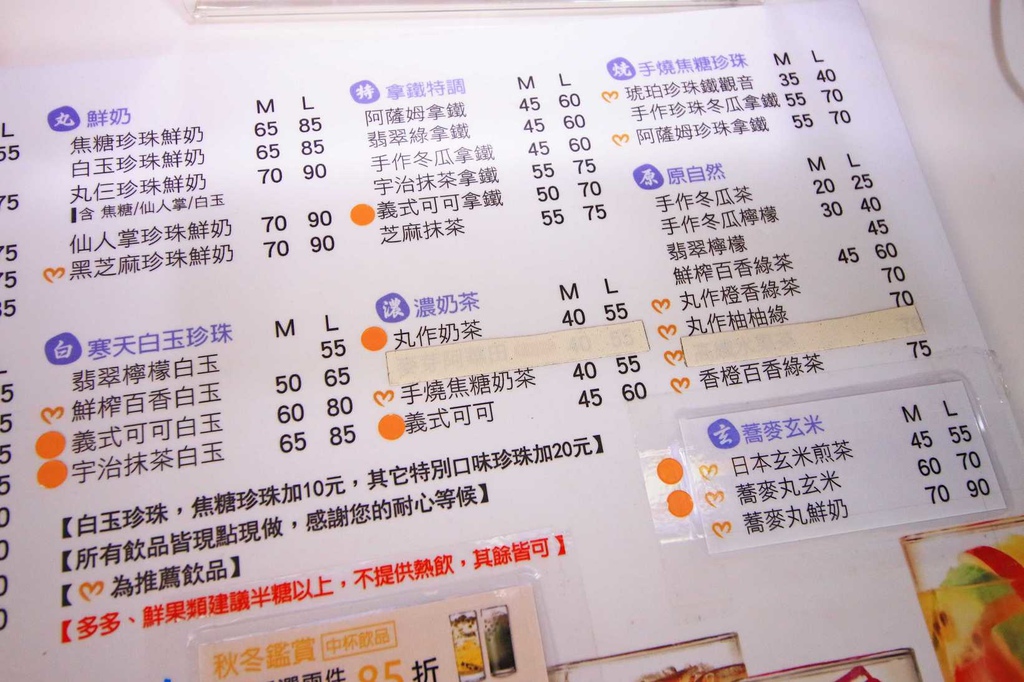 丸 鮮奶 M L
焦糖珍珠鮮奶 65 85
白玉珍珠鮮奶 65 85
丸仨珍珠鮮奶 70 90
含 焦糖/仙人掌/白玉
仙人掌珍珠鮮奶 70 90
黑芝麻珍珠鮮奶 70 90
白 寒天白玉珍珠 M L
翡翠檸檬白玉 55
鮮榨百香白玉 50 65
義式可可白玉 60 80
宇治抹茶白玉 65 85
特 拿鐵特調 M L
阿薩姆拿鐵 45 60
翡翠綠拿鐵 45 60
手作冬瓜拿鐵 45 60
宇治抹茶拿鐵 55 75
義式可可拿鐵 50 70
芝麻抹茶 55 75
濃 濃奶茶 M L
丸作奶茶 40 55
手燒焦糖奶茶 40 55
義式可可 45 60
燒 手燒焦糖珍珠 M L
琥珀珍珠鐵觀音 35 40
手作珍珠冬瓜拿鐵 55 70
阿薩姆珍珠拿鐵 55 70
原 原自然 M L
手作冬瓜茶 20 25
手作冬瓜檸檬 30 40
翡翠檸檬 45
鮮榨百香綠茶 45 60
丸作橙香綠茶 70
丸作柚柚綠 70
香橙百香綠茶 75
玄 蕎麥玄米 M L
日本玄米煎茶 45 55
蕎麥丸玄米 60 70
蕎麥丸鮮奶 70 90
【白玉珍珠，焦糖珍珠加10元，其它特別口味珍珠加20元】
【所有飲品皆現點現做，感謝您的耐心等候】
【 為推薦飲品】
【多多、鮮果類建議半糖以上，不提供熱飲，其餘皆可】
秋冬鑑賞 中杯飲品
兩件 85折